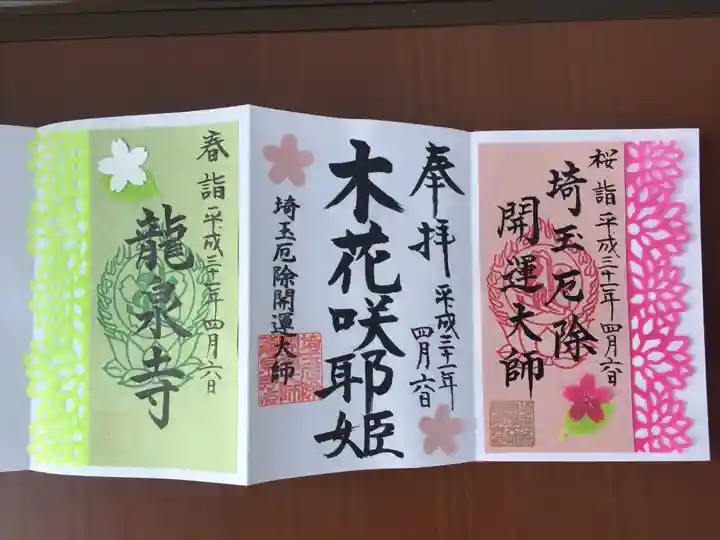 桜詣 平成三十一年 四月六日
埼玉厄除
開運大師
奉拝 平成三十一年
四月六日
木花咲耶姫
埼玉厄除開運大師
春詣 平成三十一年 四月六日
龍泉寺